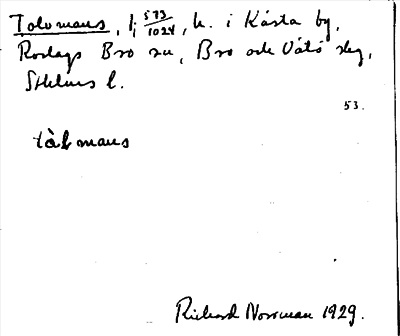 Tolvmans, 1; 573/1024, h. i Kårsta by,
Roslags Bro sn, Bro och Vätö skg,
Sthlms l.
53.
tålmans
Richard Norrman 1929.